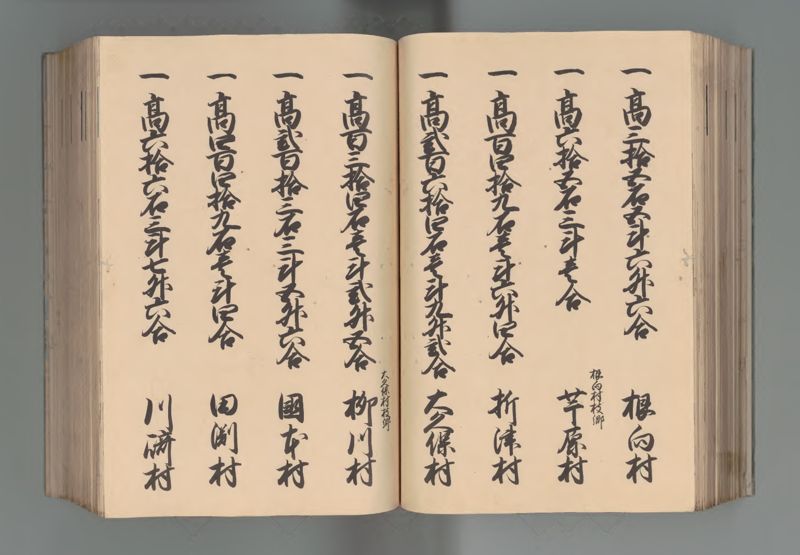 一 高三拾五石五斗六升六合 根向村
一 高六拾五石三斗壱合
根向村枝郷
芋原村
一 高百四拾九石壱斗六升四合 折津村
一 高弐百六拾四石壱斗九升弐合 大久保村
一 高百三拾四石壱斗弐升五合
大久保村枝郷
柳川村
一 高弐百拾三石三斗五升六合 國本村
一 高四百四拾九石壱斗四合 田渕村
一 高六拾六石三斗七升六合 川﨑村